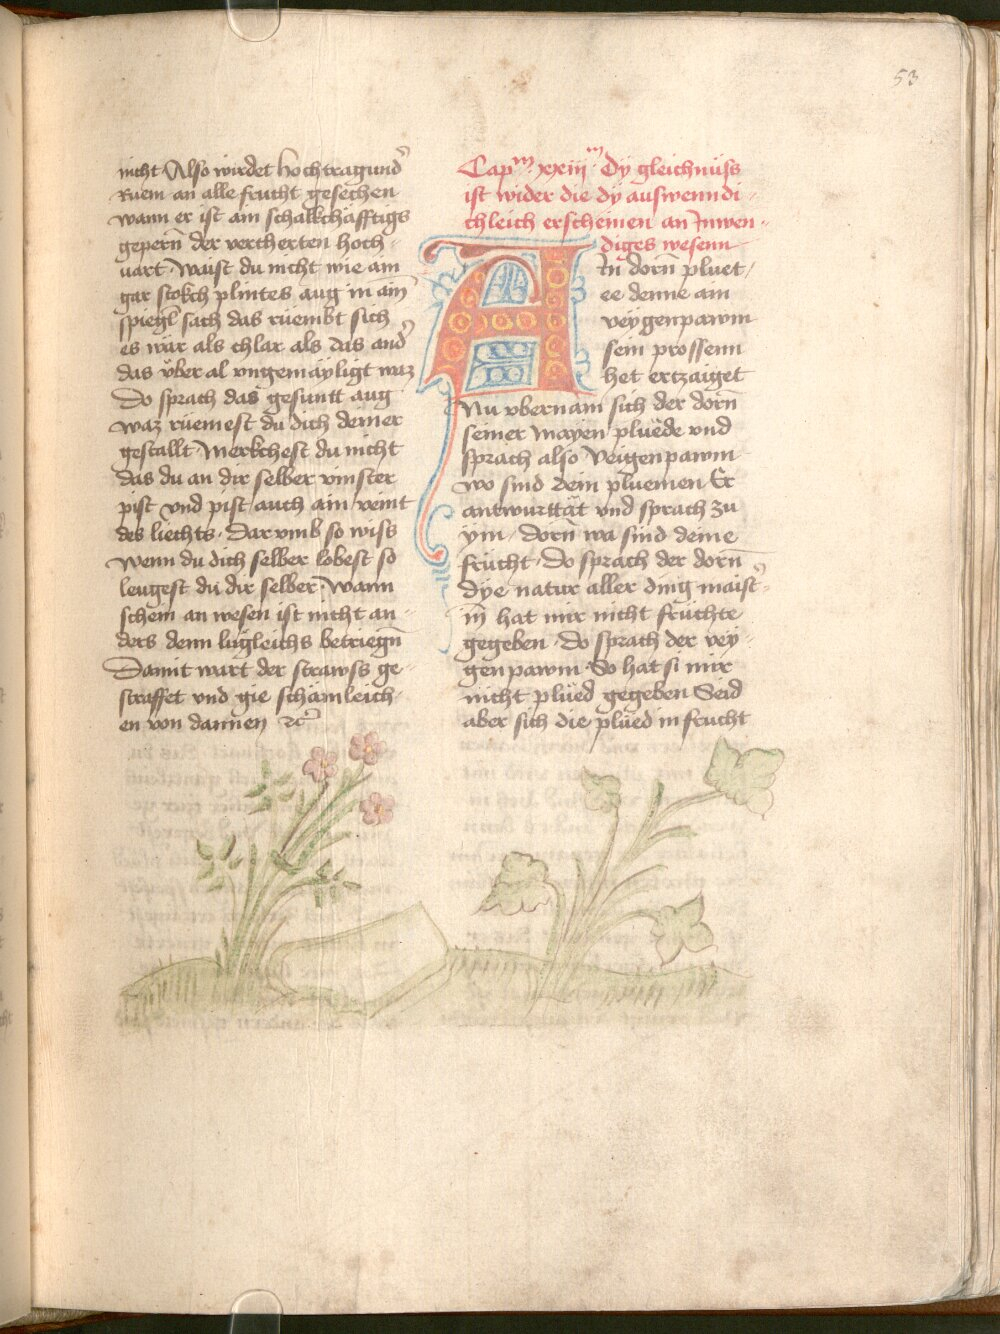 53
nicht Also wirdet hochtragund᷑
Ruem an alle frucht gesechen
wann er ist am schalkchäfftigs
geperñ der vertherten hoch-
uart. Waist du nicht wie ain
gar stokch plintes aug in am̄
spiegl sach das rüembt sich
es wär als chlar als das and᷑
das v̈ber al vngemäyligt waz
Do sprach das gesuntt aug
waz rüemest du dich deiner
gestallt Merkchest du nicht
das du an dir selber vinster
pist vnd pist auch ain veint
des liechts. Darvmb so wiss
wenn du dich selber lobest so
leugest du dir selber. Wann
schein an wesen ist nicht an-
ders denn lugleichs betriegn̄
Damit wart der strawss ge-
straffet vnd gie schamleich-
en von dannen ⁊c̄
Capᵐ xxiiiᵐ Dÿ gleichnuss
ist wider die dÿ auswenndi-
chleich erscheinen an Inwen-
diges wesenn
AIn dorn̄ pluet/
ee denne am
veÿgenpawm
sein prossenn
het ertzaiget
Nu vbernam sich der dorn̄
seiner Mayen plüede vnd
sprach also Veigenpawm
wo sind dein pluemen Er
antwurttät vnd sprach zu
ÿm/ dorn̄ wa sind deine
frücht. Do sprach der dorn̄
dÿe natur aller ding maist᷑-
in̄ hat mir nicht früchte
gegeben. Do sprach der veÿ-
genpawm So hat si mir
nicht plüed gegeben Seid
aber sich die plüed in frucht